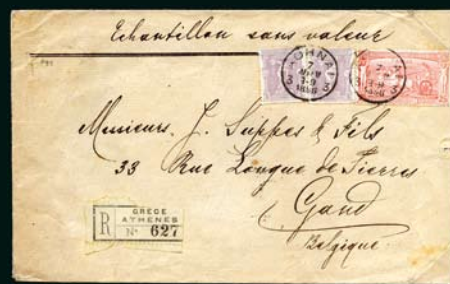 Echantillon sans valeur
Messieurs J. Suppes & Fils
33 Rue Longue de Pierres
Gand
Belgique.
R
GRECE
ATHENES
No 627